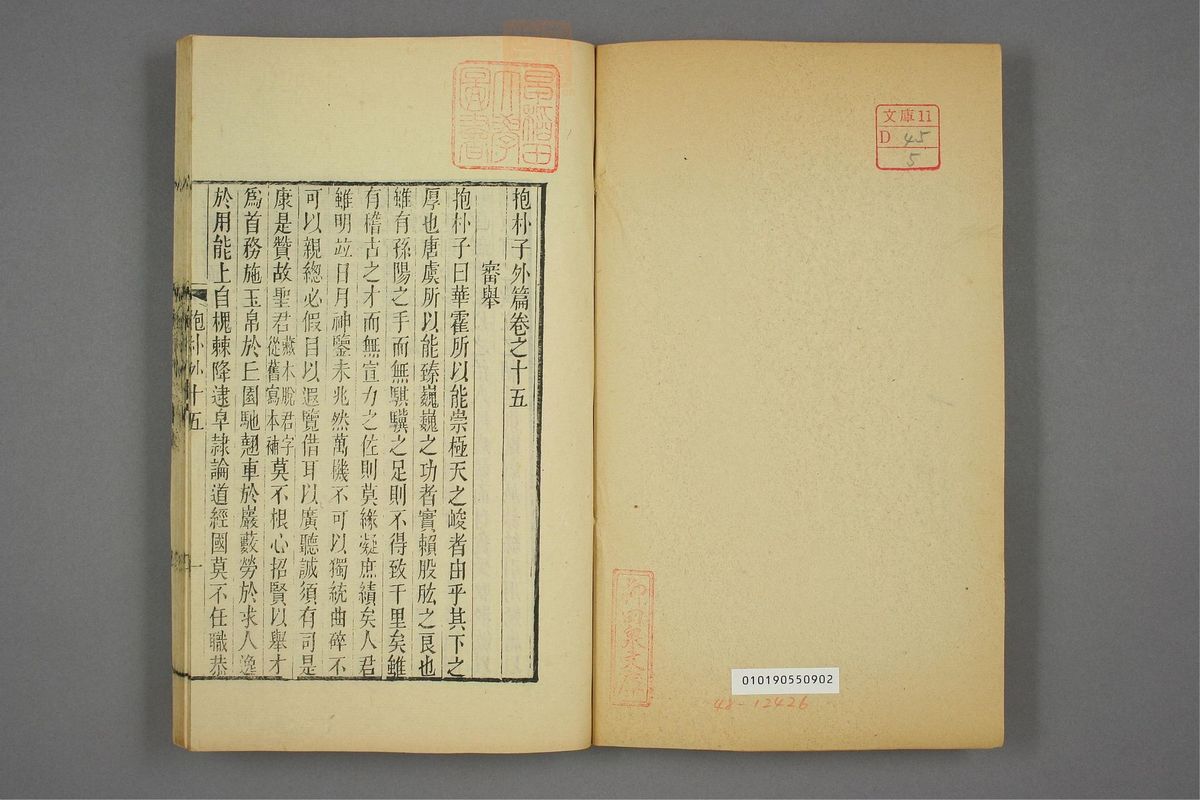 文庫11
D 45
5
010190550902
48-12426
早稲田大學圖書
抱朴子外篇卷之十五
審舉
抱朴子曰華霍所以能崇極天之峻者由乎其下之
厚也唐虞所以能臻巍巍之功者實賴股肱之良也
雖有孫陽之手而無騏驥之足則不得致千里矣雖
有稽古之才而無宣力之佐則莫緣凝庶績矣人君
雖明竝日月神鑒未兆然萬機不可以獨統曲碎不
可以親總必假目以遐覽借耳以廣聽誠須有司是
康是贊故聖君藏本脫君字從舊寫本補莫不根心招賢以舉才
爲首務施玉帛於丘園馳翹車於巖藪勞於求人逸
於用能上自槐棘降逮皁隷論道經國莫不任職恭
抱朴外十五
一